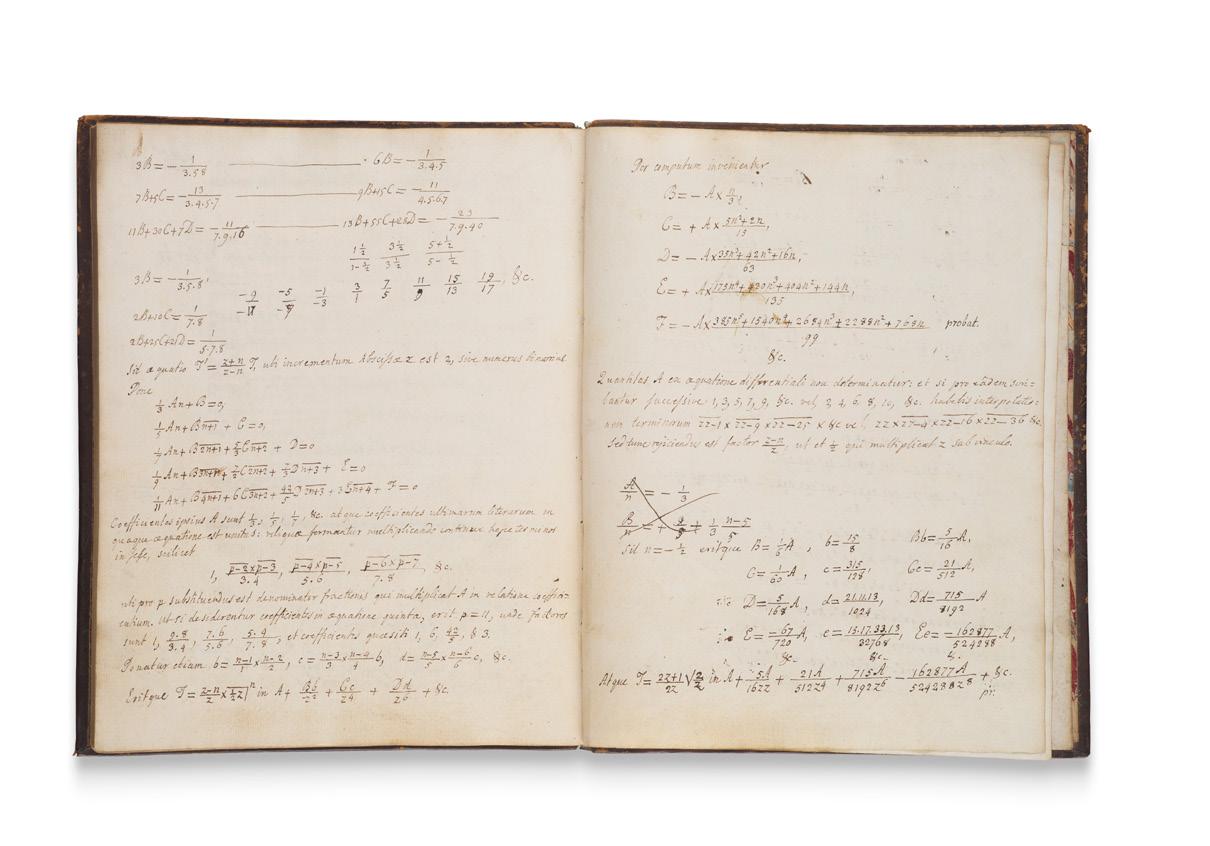 3B = − 1/3.5.8 ——— 6B = − 1/3.4.5
7B+5C = − 13/3.4.5.7 ——— 9B+15C = − 11/4.5.6.7
11B+30C+7D = − 11/7.9.16 ——— 13B+55C+28D = − 23/7.9.40
1½/1−½ 3½/3½ 5+½/5−½
3B = − 1/3.5.8,
−9/−11 −5/−9 −1/−3 3/1 7/5 11/9 15/13 19/17, &c.
2B+10C = 1/7.8
2B+25C+21D = 1/5.7.8
Sit æquatio T' = z+n/z−n T, uti incrementum Abscissæ z est 2, sive numerus binarius
Pone
⅓An + B = 0,
⅕An + Bn+1 + C = 0,
1/7An + B2n+1 + 5/2Cn+2 + D = 0
1/9An + B3n+1 + 7/2C2n+2 + 7/2Dn+3 + E = 0
1/11An + B4n+1 + 6C3n+2 + 42/5D2n+3 + 3En+4 + F = 0
Coefficientes ipsius A sunt ⅓, ⅕, 1/7, &c. atque coefficientes ultimarum literarum in
quaque æquatione est unitas: reliquæ formantur multiplicando continue hosce terminos
in sese, scilicet
1, p−2×p−3/3.4, p−4×p−5/5.6, p−6×p−7/7.8, &c.
ubi pro p substituendus est denominator fractionis qui multiplicat A in relatione coefficien=
tium. Ut si desiderentur coefficientes in æquatione quinta, erit p = 11, unde factores
sunt 1, 9.8/3.4, 7.6/5.6, 5.4/7.8, et coefficientes quæsiti 1, 6, 42/5, & 3.
Ponatur etiam b = n−1/1 × n−2/2, c = n−3/3 × n−4/4 b, d = n−5/5 × n−6/6 c, &c.
Eritque T = z−n/2 × 1/4z|ⁿ in A + Bb/z² + Cc/z4 + Dd/z6 + &c.
Per computum invenientur
B = − A× n/3,
C = + A× 5n²+2n/15,
D = − A× 35n³+42n²+16n/63,
E = + A× 175n⁴+420n³+404n²+144n/135,
F = − A× 385n⁵+1540n⁴+2684n³+2288n²+768n/99 probat.
&c.
Quantitas A ex æquatione differentiali non determinatur: et si pro eadem scri=
bantur successive 1, 3, 5, 7, 9, &c. vel, 2, 4, 6, 8, 10, &c. habebis interpolatio=
nem terminorum zz−1 × zz−9 × zz−25 × &c vel, zz×zz−4×zz−16×zz−36 &c.
sed tunc rejiciendus est factor z−n/2, ut et ½ qui multiplicat z sub vinculo.
A/n = − ⅓
B/n = + 2/5 + ⅓ n−5/5
Sit n = −½ eritque B = ⅙A, b = 15/8 Bb = 5/16 A,
C = 1/60 A, c = 315/128, Cc = 21/512 A,
D = 5/168 A, d = 21.11.13/1024, Dd = 715/8192 A
E = −67/720 A, e = 15.17.33.13/32768, Ee = −162877/524288 A,
&c. &c. &.
Atque T = 2z+1/2z √z/2 in A + 5A/16zz + 21A/512z4 + 715A/8192z6 − 162877A/524288z8 + &c.
pr.